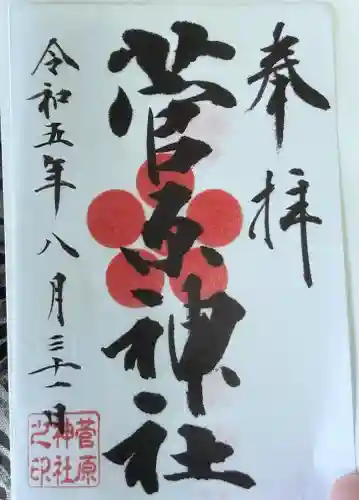 奉拝
菅原神社
令和五年八月三十一日
菅原神社之印